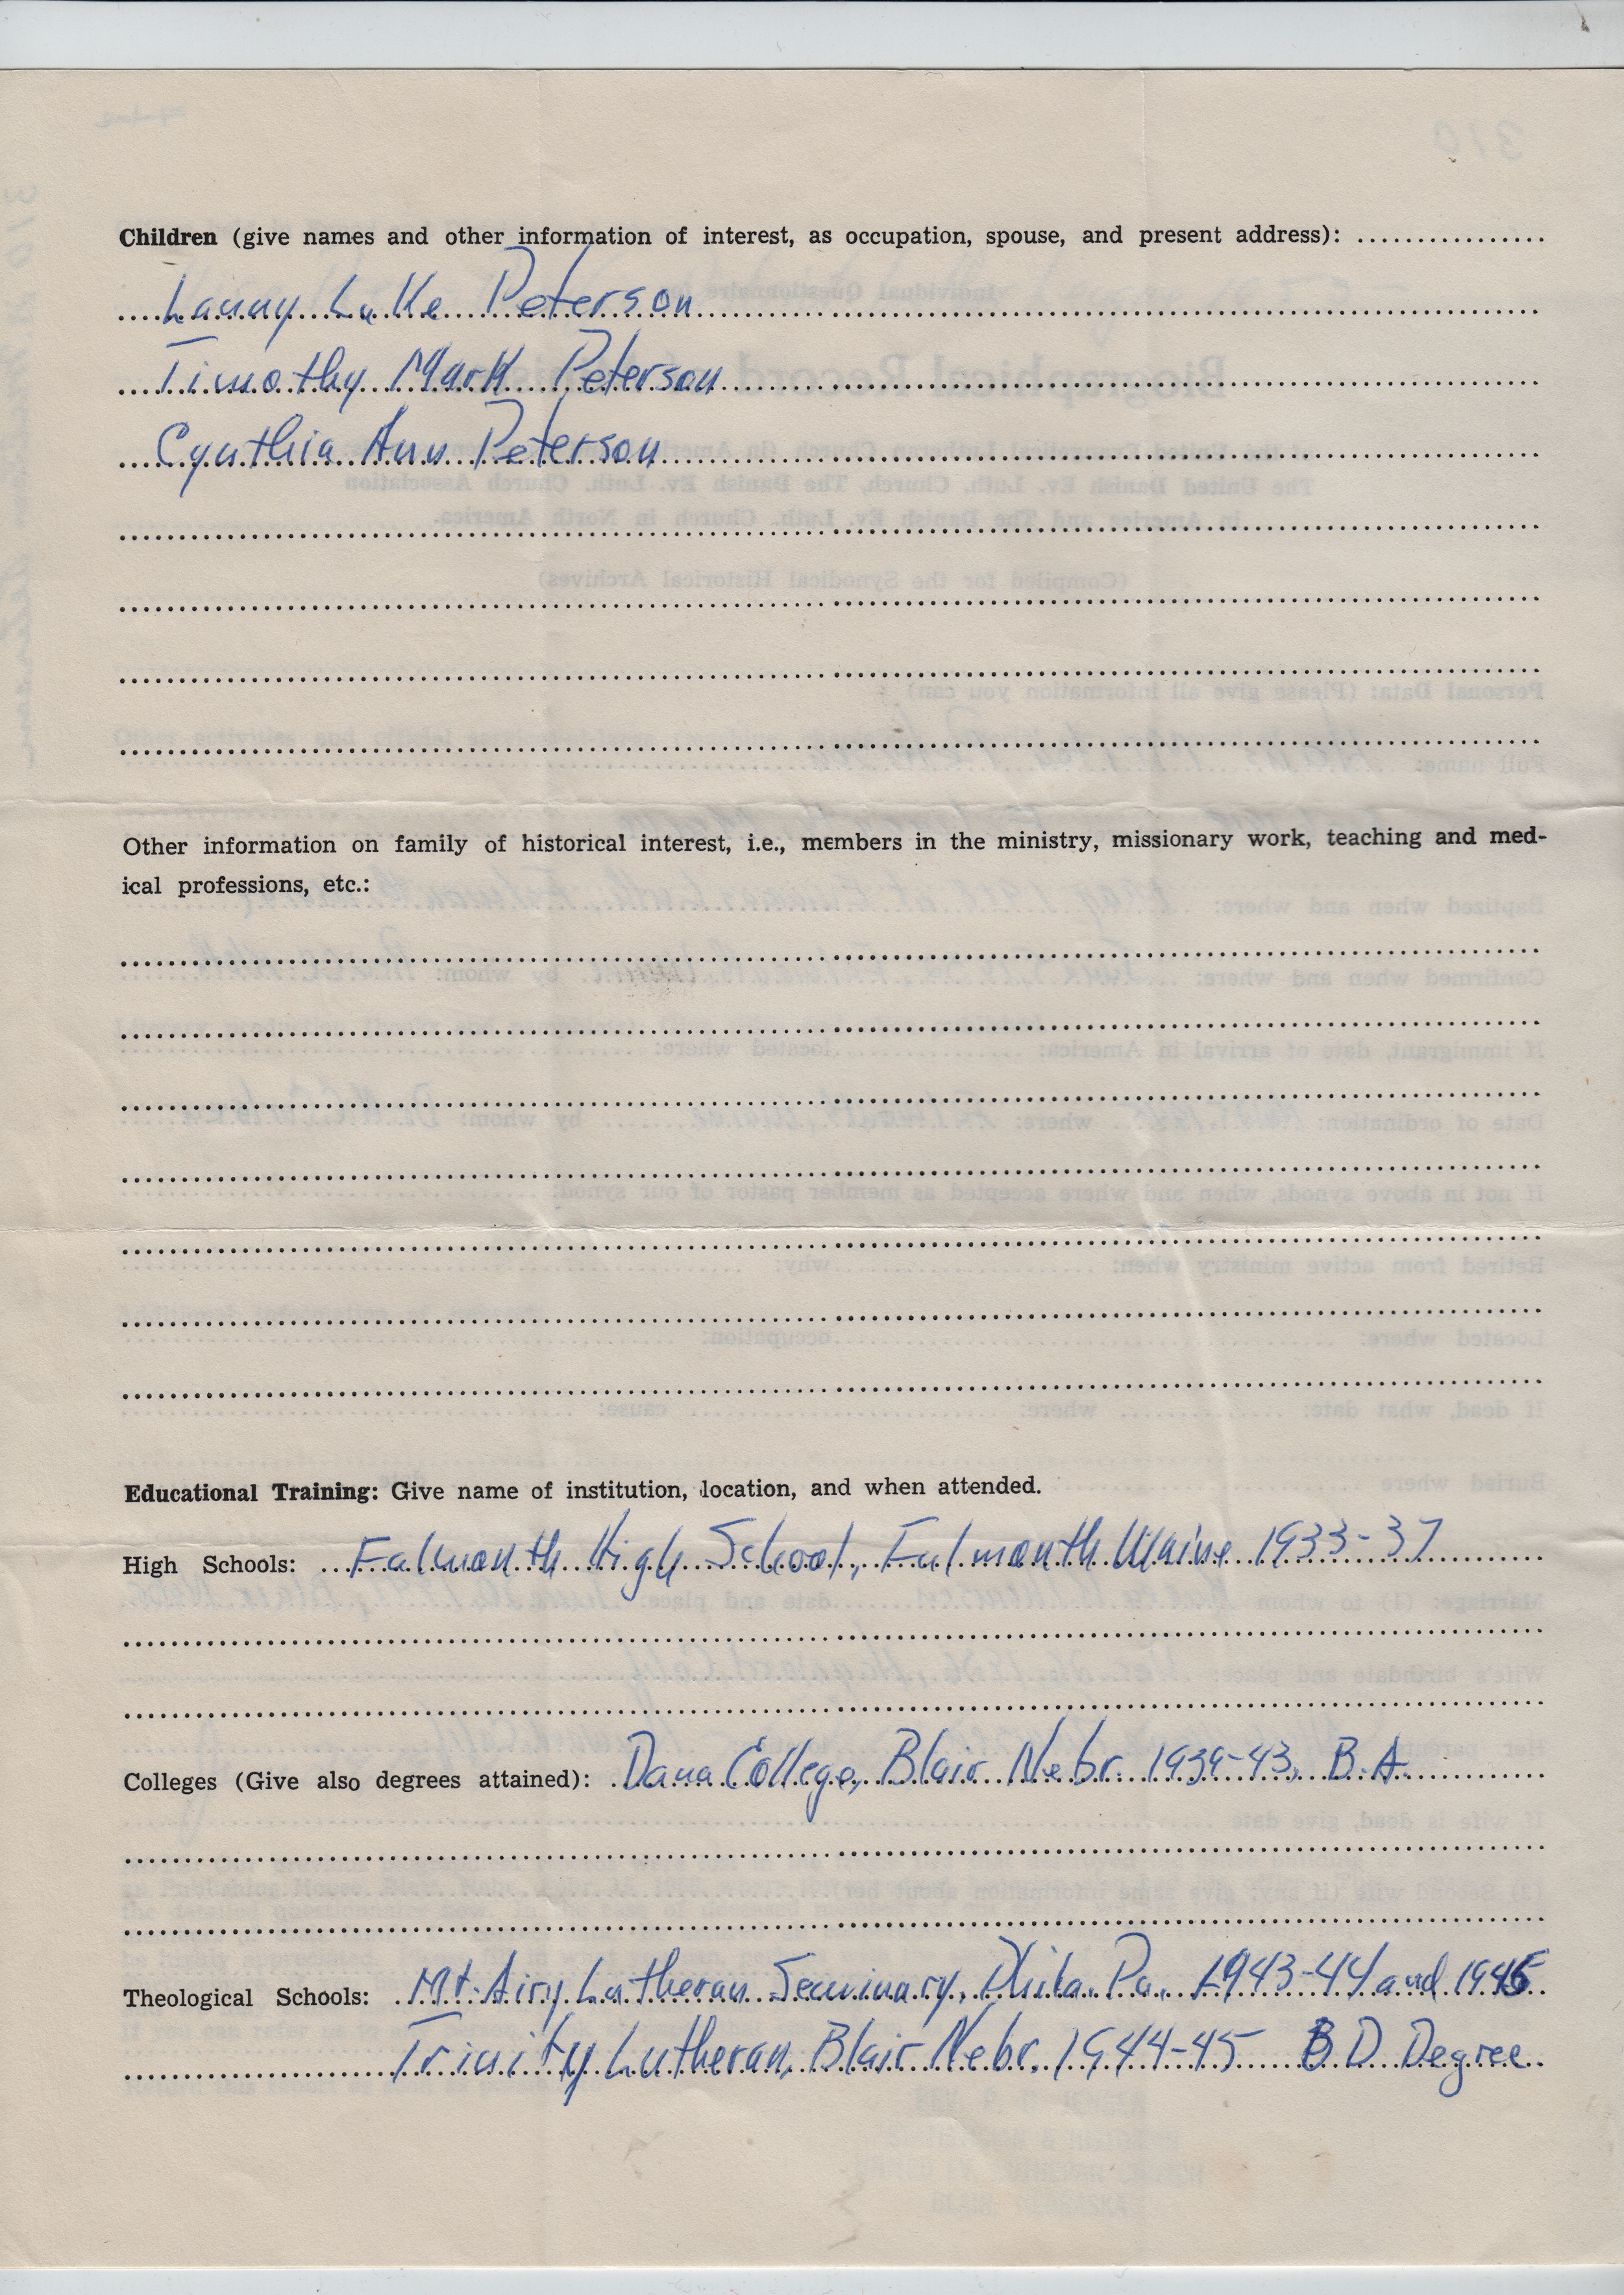 Children (give names and other information of interest, as occupation, spouse, and present address):
Lanny Luke Peterson
Timothy Mark Peterson
Cynthia Ann Peterson
Other information on family of historical interest, i.e., members in the ministry, missionary work, teaching and med-
ical professions, etc.:
Educational Training: Give name of institution, location, and when attended.
High Schools: Falmouth High School, Falmouth Maine 1933-37
Colleges (Give also degrees attained): Dana College, Blair Nebr. 1939-43, B.A.
Theological Schools: Mt. Airy Lutheran Seminary, Phila. Pa. 1943-44 and 1946
Trinity Lutheran, Blair Nebr. 1944-45 B D Degree